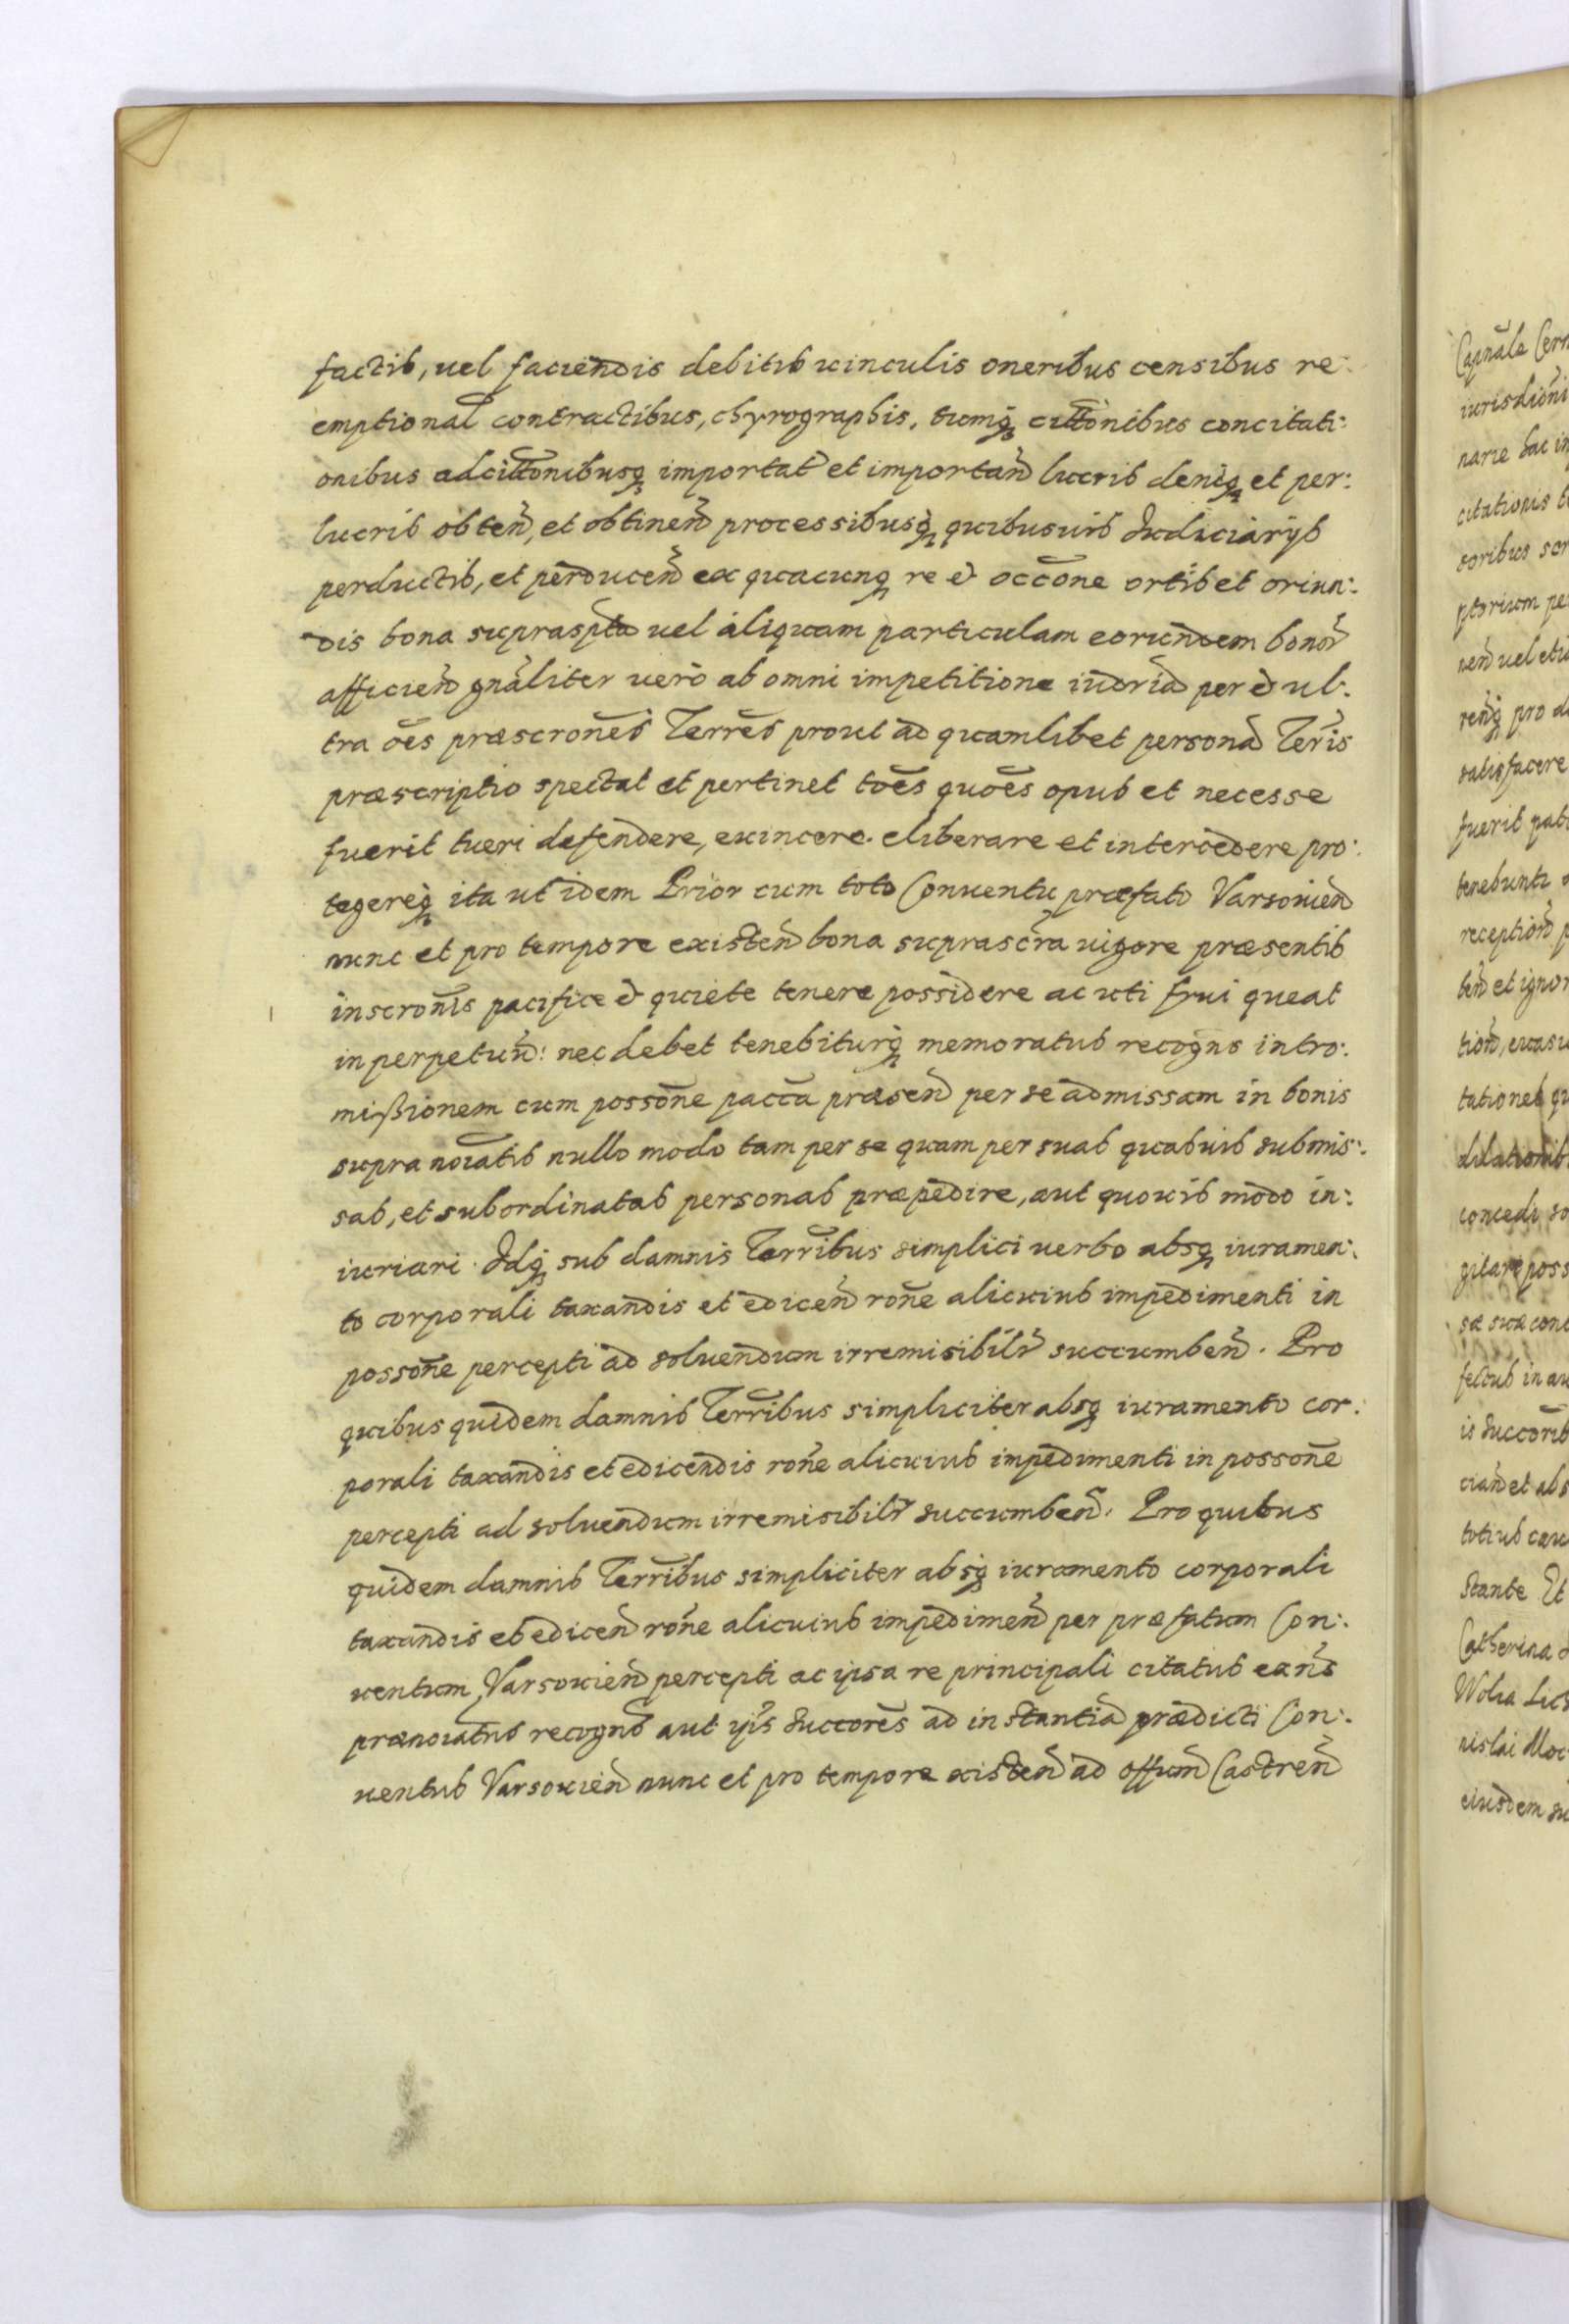 factis, uel faciendis debitis uinculis oneribus censibus re:
emptional contractibus, chyrographis, tumq cittonibus concitati:
onibus adcittonibusq importat et importan lucris deniq et per:
lucris obten, et obtinen processibusq quibusuis Iudiciarÿs
perductis, et perducen ex quacunq re & occone ortis et oriun:
dis bona supraspta uel aliquam particulam eorundem bonor
afficien gnaliter uero ab omni impetitione iudria per & ul:
tra oes praescrones Terres prout ad quamlibet persona Teris
praescriptio spectat et pertinet toes quoes opus et necesse
fuerit tueri defendere, euincere. eliberare et intercedere pro:
tegereq ita ut idem Prior cum toto Conuentu praefato Varsouien
nunc et pro tempore existen bona suprascra uigore praesentis
inscronis pacifice & quiete tenere possidere ac uti frui queat
in perpetuu: nec debet tenebiturq memoratus recogns intro:
mißionem cum possone pacca praesen per se admissam in bonis
supra noiatis nullo modo tam per se quam per suas quasuis submis:
sas, et subordinatas personas praepedire, aut quouis modo in:
iuriari. Idq sub damnis Terribus simplici uerbo absq iuramen:
to corporali taxandis et edicen rone alicuius impedimenti in
possone percepti ad soluendum irremisibilr succumben. Pro
quibus quidem damnis Terribus simpliciter absq iuramento cor:
porali taxandis et edicendis rone alicuius impedimenti in possone
percepti ad soluendum irremisibilr succumben. Pro quibus
quidem damnis Terribus simpliciter absq iuramento corporali
taxandis et edicen rone alicuius impedimen per praefatum Con:
uentum Varsouien percepti ac ipsa re principali citatus eans
praenoiatus recogns aut ipis succores ad instantia praedicti Con:
uentus Varsouien nunc et pro tempore existen ad offum Castren
Capnale
narie hac
citationis
nen uel
pro
satisfacere
fuerit
tenebuntr
et ignor
concedi
poss
in
is succorib
et abs
totius
stante Et
Catherina
Wola
eiusdem